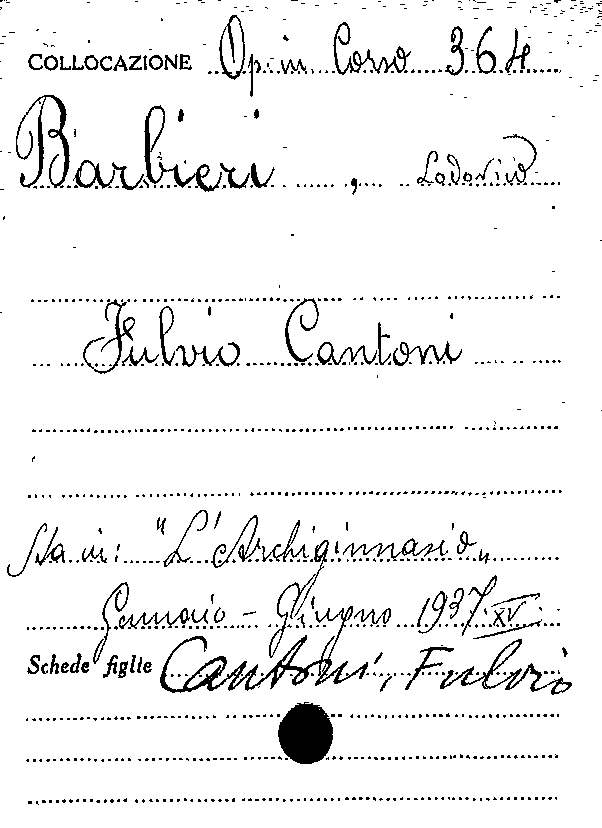 COLLOCAZIONE Op. in Corso 364
Barbieri, Lodovico
Fulvio Cantoni
Sta in: "L'Archiginnasio„
Gennaio - Giugno 1937. XV.
Schede figlie Cantoni, Fulvio